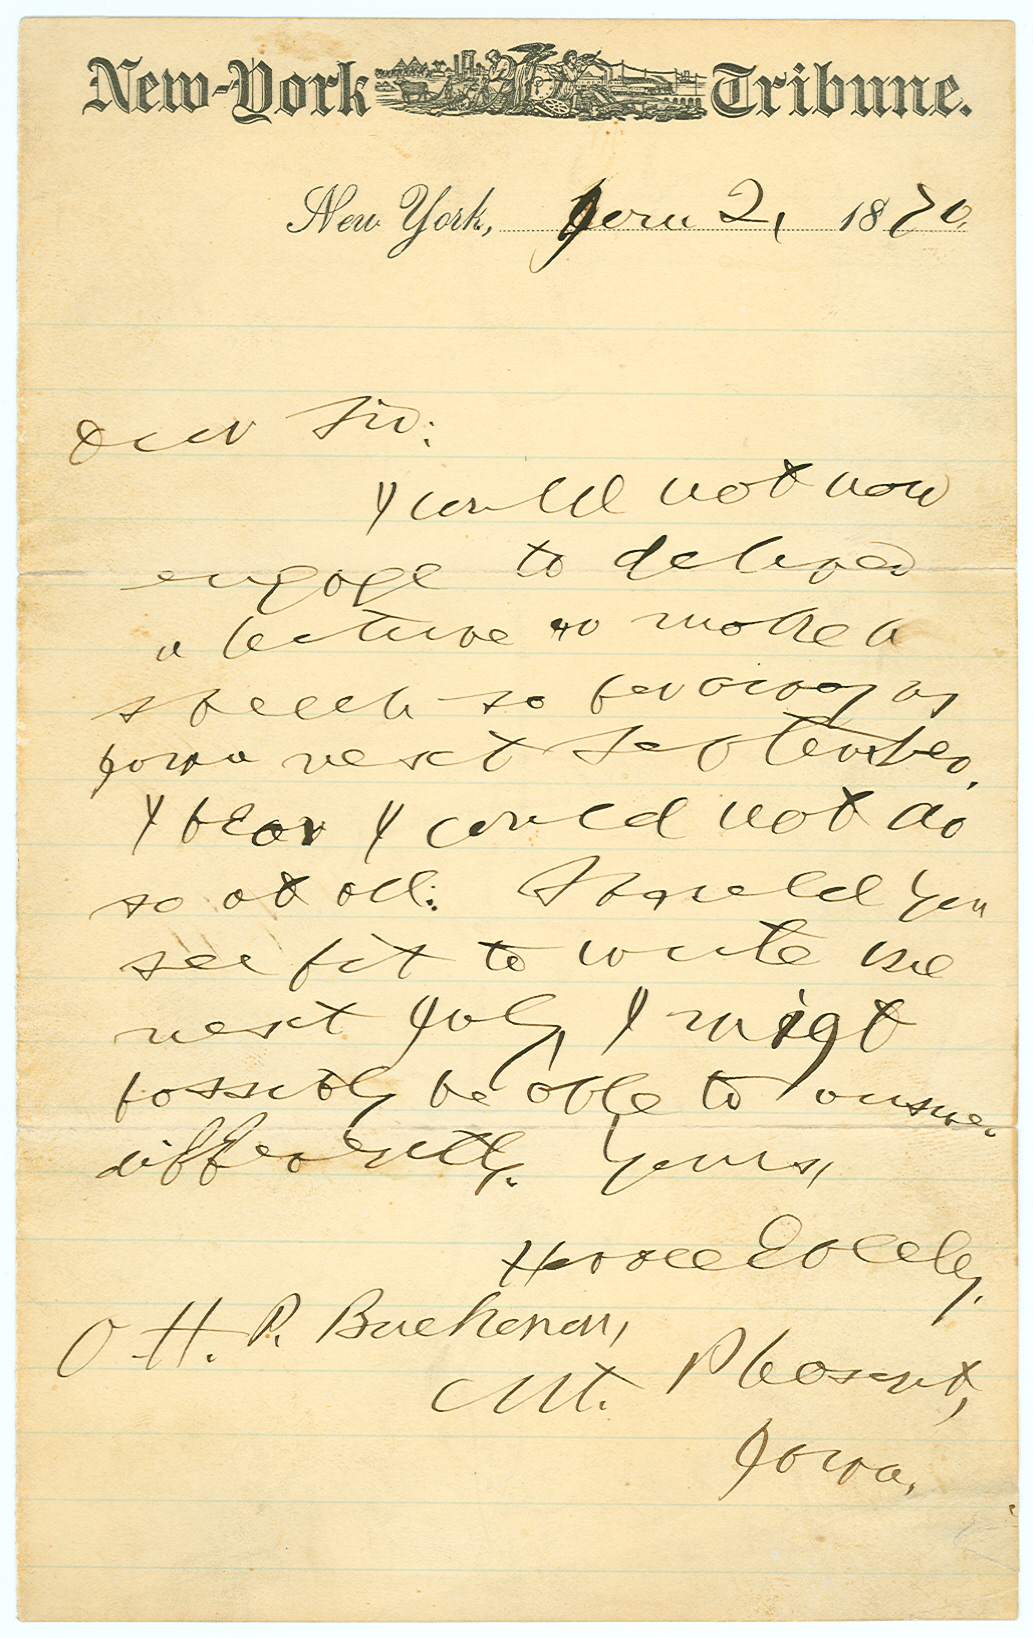 New-York Tribune.
New York, Jany 2, 1870.
Dear Sir:
I could not now
engage to deliver
a lecture or make a
speech so far away as
Iowa next September.
I fear I could not do
so at all. Should you
see fit to write me
next July, I might
possibly be able to answer
differently. Yours,
Horace Greeley.
O. H. P. Buchanan,
Mt. Pleasant,
Iowa.